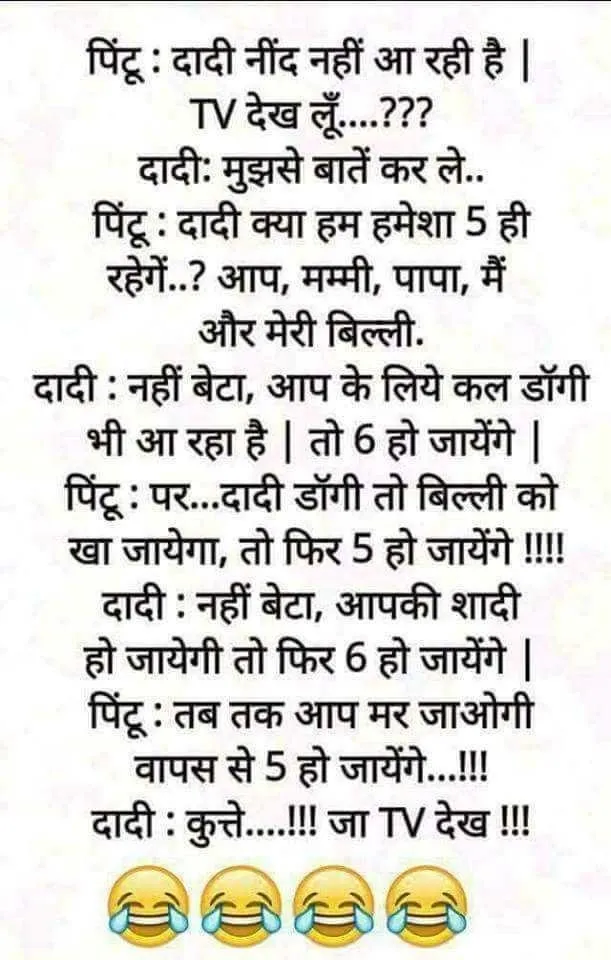 पिंटू : दादी नींद नहीं आ रही है |
TV देख लूँ....???
दादी: मुझसे बातें कर ले..
पिंटू : दादी क्या हम हमेशा 5 ही
रहेगें..? आप, मम्मी, पापा, मैं
और मेरी बिल्ली.
दादी : नहीं बेटा, आप के लिये कल डॉगी
भी आ रहा है | तो 6 हो जायेंगे |
पिंटू : पर...दादी डॉगी तो बिल्ली को
खा जायेगा, तो फिर 5 हो जायेंगे !!!!
दादी : नहीं बेटा, आपकी शादी
हो जायेगी तो फिर 6 हो जायेंगे |
पिंटू : तब तक आप मर जाओगी
वापस से 5 हो जायेंगे...!!!
दादी : कुत्ते....!!! जा TV देख !!!